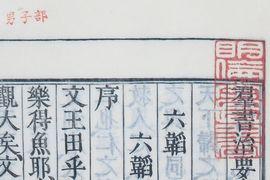 男子部
羣書治要
六韜
六韜
序
文王田乎
樂得魚耶
觀大矣文